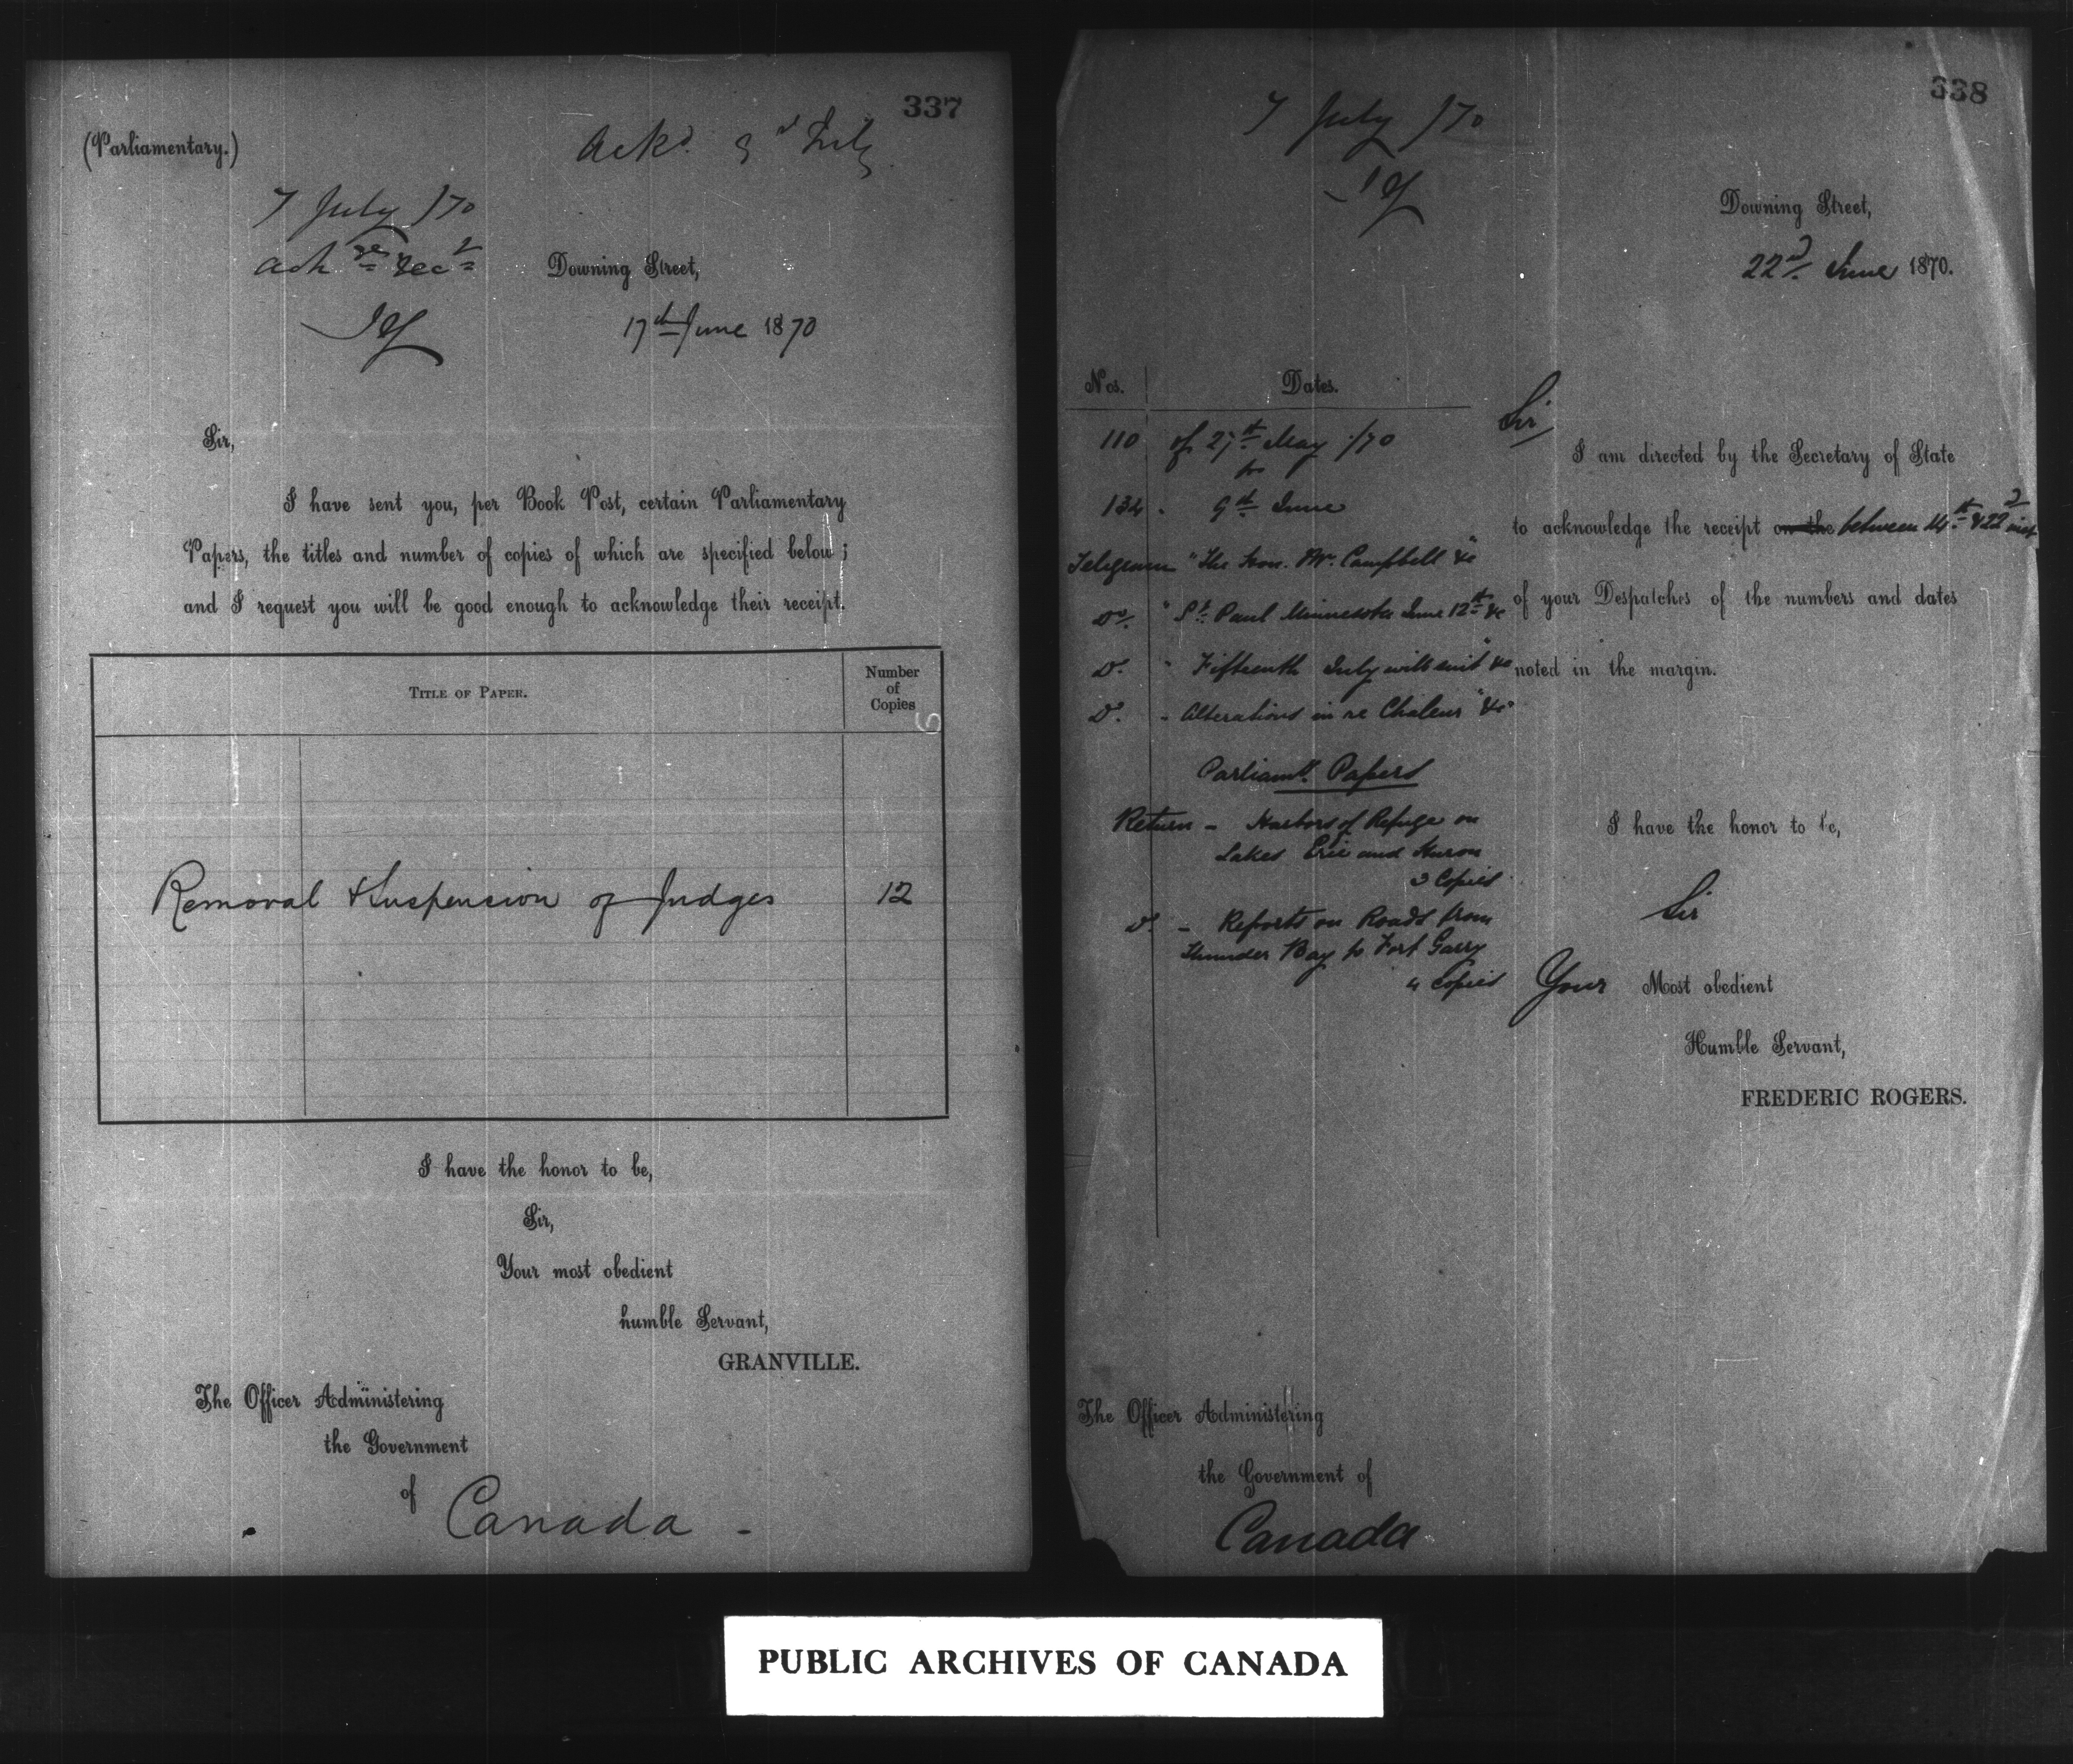 337
(Parliamentary.)
Ackd. 9th July
7 July /70
Ack re rect
Downing Street,
17th June 1870
Sir,
I have sent you, per Book Post, certain Parliamentary
Papers, the titles and number of copies of which are specified below;
and I request you will be good enough to acknowledge their receipt.
TITLE OF PAPER.
Number
of
Copies
Removal & Suspension of Judges 12
I have the honor to be,
Sir,
Your most obedient
humble Servant,
GRANVILLE.
The Officer Administering
the Government
of
Canada -
338
7 July /70
Downing Street,
22d. June 1870.
Nos. Dates.
110 of 27th May /70
134. 9th June
Telegram "The Hon. Mr. Campbell" &c
Do. "St. Paul Minnesota June 12th &c
Do. " Fifteenth July will suit" &c
Do. " Alterations in re Chaleur" &c
Parliamy. Papers
Return - Harbors of Refuge on
Lakes Erie and Huron
3 Copies
Do. - Reports on Roads from
Thunder Bay to Fort Garry
4 Copies
Sir,
I am directed by the Secretary of State
to acknowledge the receipt on the between 14th & 22d inst
of your Despatches of the numbers and dates
noted in the margin.
I have the honor to be,
Sir
Your Most obedient
Humble Servant,
FREDERIC ROGERS.
The Officer Administering
the Government of
Canada
PUBLIC ARCHIVES OF CANADA